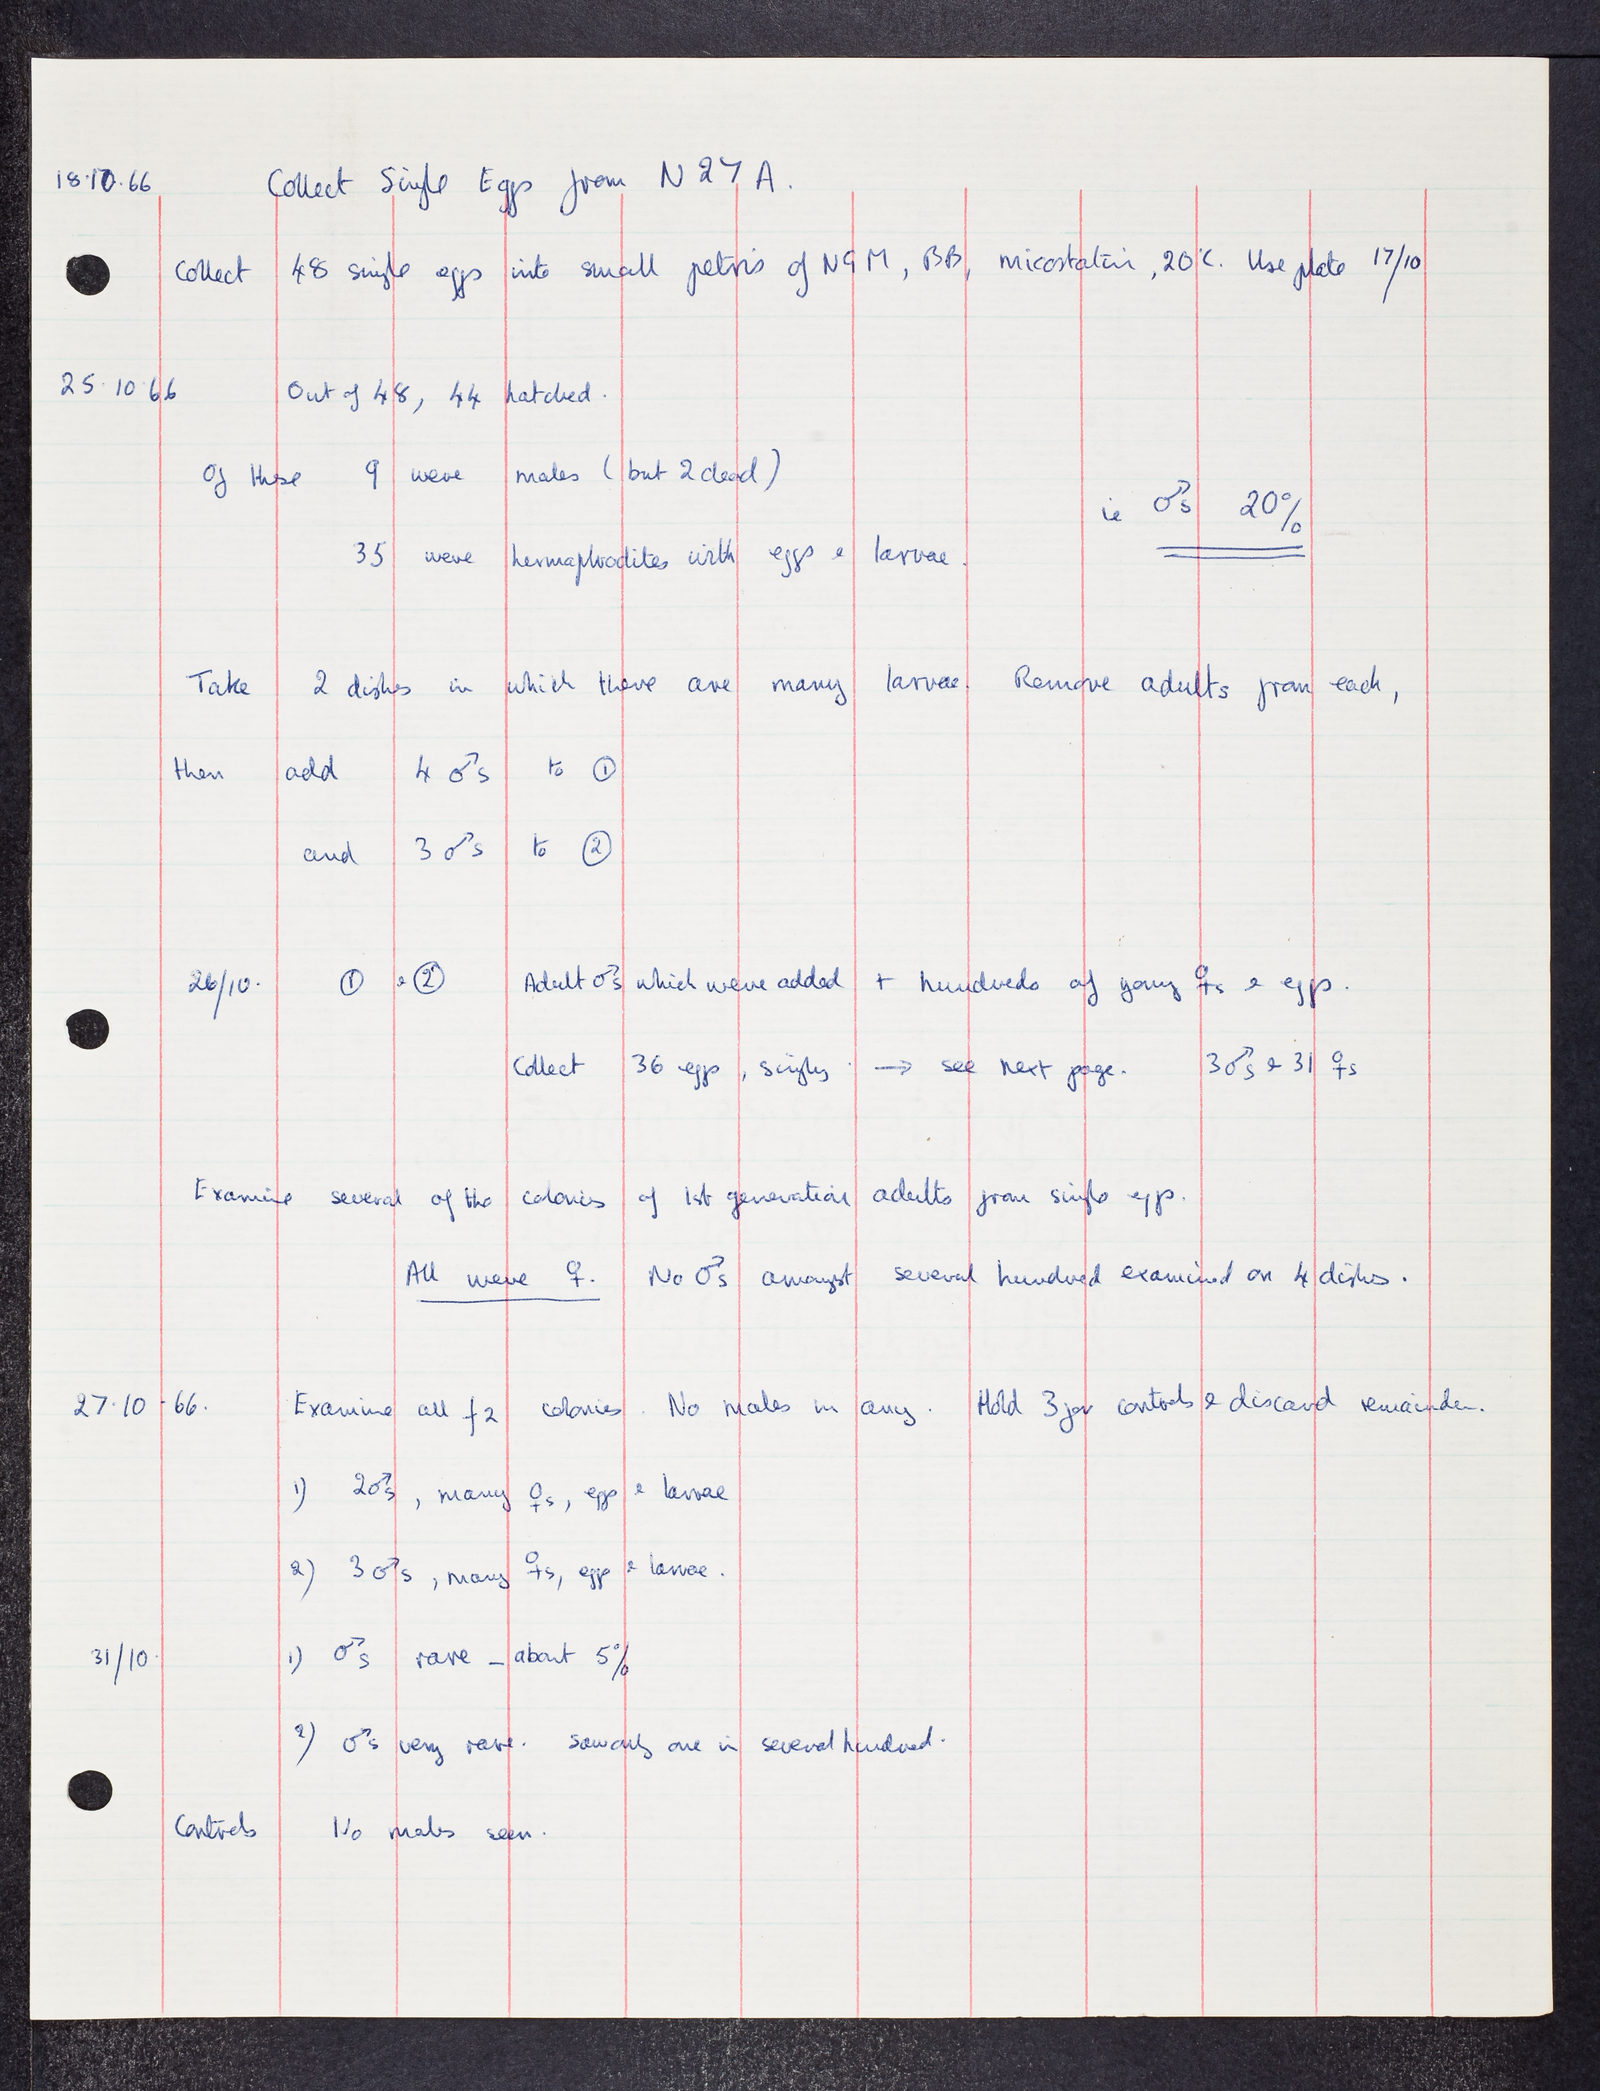 18.10.66 Collect Single Eggs from N27A.
Collect 48 single eggs into small petris of NGM, BB, micostatin, 20°C. Use plate 17/10
25.10.66 Out of 48, 44 hatched.
Of these 9 were males (but 2 dead)
ie ♂s 20%
35 were hermaphrodites with eggs & larvae.
Take 2 dishes in which there are many larvae. Remove adults from each,
then add 4 ♂s to ①
and 3 ♂s to ②
26/10. ① & ② Adult ♂s which were added + hundreds of young ♀s & eggs.
Collect 36 eggs, singly. → see next page. 3♂s & 31 ♀s
Examine several of the colonies of 1st generation adults from single eggs.
All were ♀. No ♂s amongst several hundred examined on 4 dishes.
27.10.66. Examine all f2 colonies. No males in any. Hold 3 for controls & discard remainder.
1) 2♂s, many ♀s, eggs & larvae
2) 3♂s, many ♀s, eggs & larvae.
31/10. 1) ♂s rare - about 5%
2) ♂s very rare. Saw only one in several hundred.
Controls No males seen.